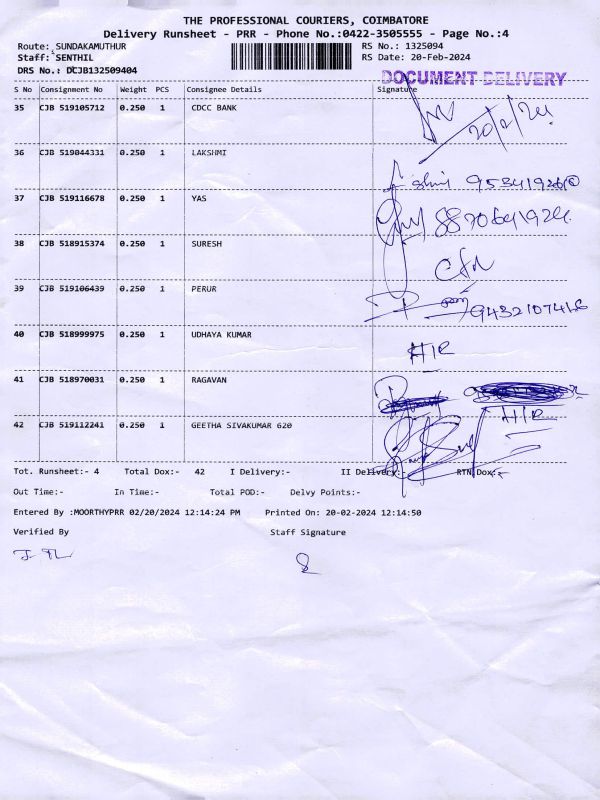 THE PROFESSIONAL COURIERS, COIMBATORE
Delivery Runsheet - PRR - Phone No.:0422-3505555 - Page No.:4
Route: SUNDAKAMUTHUR RS No.: 1325094
Staff: SENTHIL RS Date: 20-Feb-2024
DRS No.: DCJB132509404
DOCUMENT DELIVERY
S No Consignment No Weight PCS Consignee Details Signature
35 CJB 519105712 0.250 1 CDCC BANK
20/2/24
36 CJB 519044331 0.250 1 LAKSHMI
37 CJB 519116678 0.250 1 YAS
8870641924
38 CJB 518915374 0.250 1 SURESH
39 CJB 519106439 0.250 1 PERUR
9432107416
40 CJB 518999975 0.250 1 UDHAYA KUMAR
H/R
41 CJB 518970031 0.250 1 RAGAVAN
H/R
42 CJB 519112241 0.250 1 GEETHA SIVAKUMAR 620
Tot. Runsheet:- 4 Total Dox:- 42 I Delivery:- II Delivery:- RTN Dox:-
Out Time:- In Time:- Total POD:- Delvy Points:-
Entered By :MOORTHYPRR 02/20/2024 12:14:24 PM Printed On: 20-02-2024 12:14:50
Verified By Staff Signature